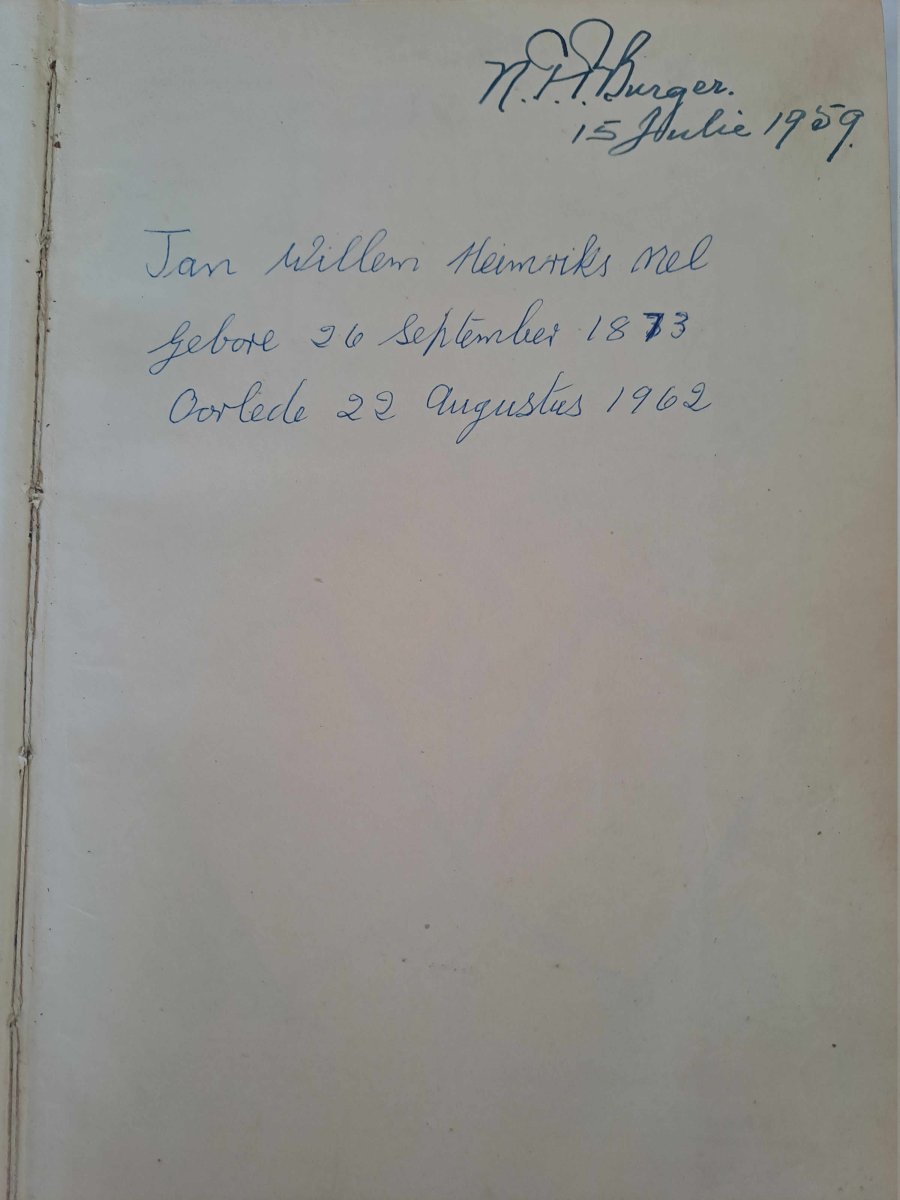 N.F.F. Burger.
15 Julie 1959.
Jan Willem Heinriks Nel
Gebore 26 September 1873
Oorlede 22 Augustus 1962